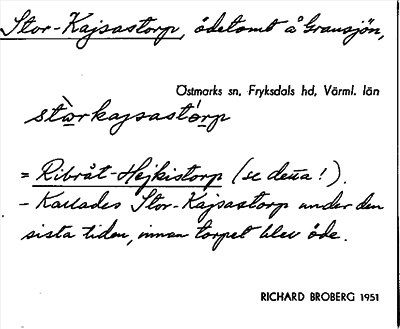 Stor-Kajsastorp, ödetomt å Gransjön,
Östmarks sn, Fryksdals hd, Värml. län
stòrkajsastórp
= Ribråt-Hejkistorp (se detta!).
- Kallades Stor-Kajsastorp under den
sista tiden, innan torpet blev öde.
RICHARD BROBERG 1951